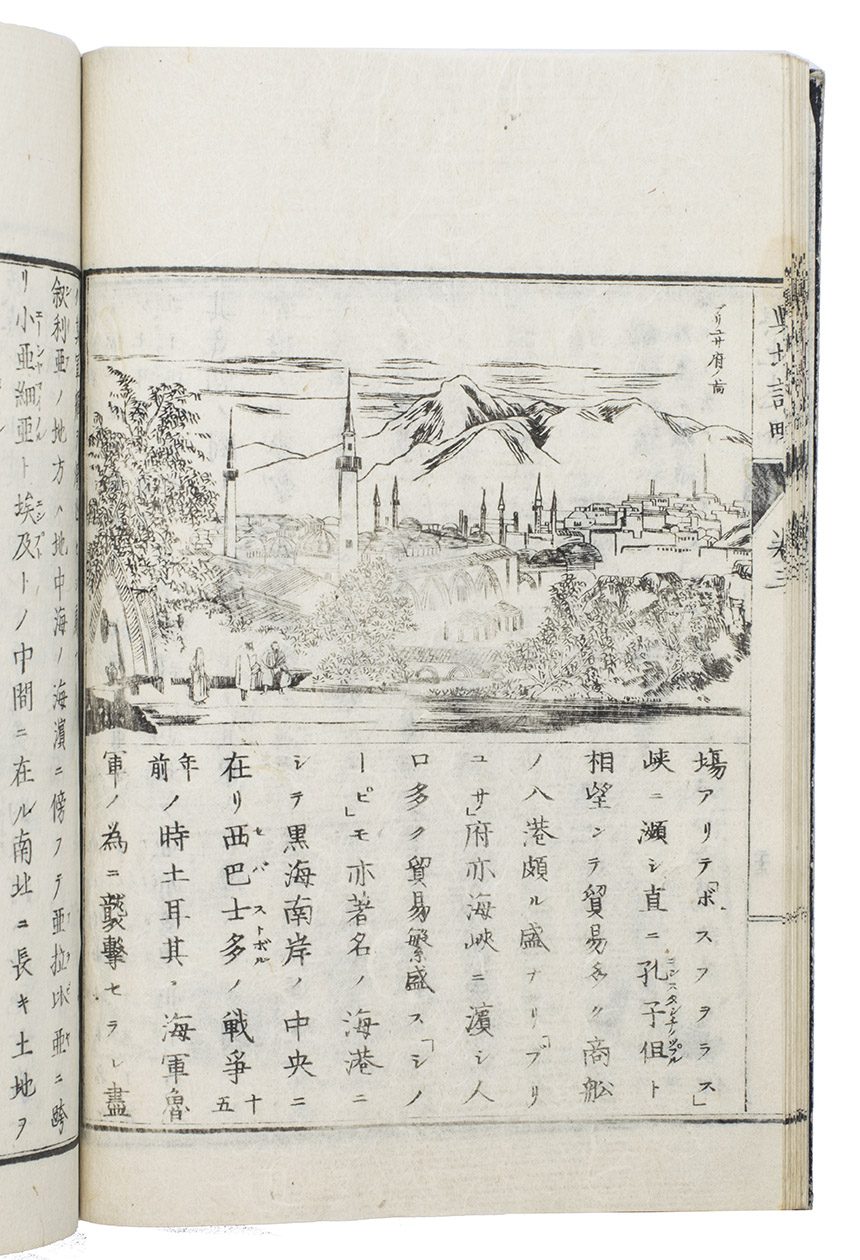 輿地誌略 卷三
ブリユサ府ノ
塲アリテ「ボスフヲラス」
峡ニ瀕シ直ニ孔子但ト
コンスタンチノップル
相望ンテ貿易多ク商舩
ノ入港頗ル盛ナリ「ブリ
ユサ」府亦海峡ニ濵シ人
口多ク貿易繁盛ス「シノ
ービ」モ亦著名ノ海港ニ
シテ黒海南岸ノ中央ニ
在リ西巴士多ノ戦爭十五
セバストポル
年前ノ時土耳其ノ海軍魯
軍ノ為ニ襲擊セラレ盡
叙利亜ノ地方ハ地中海ノ海濵ニ傍フテ亜拉比亜ニ跨
リ小亜細亜ト埃及トノ中間ニ在ル南北ニ長キ土地ヲ